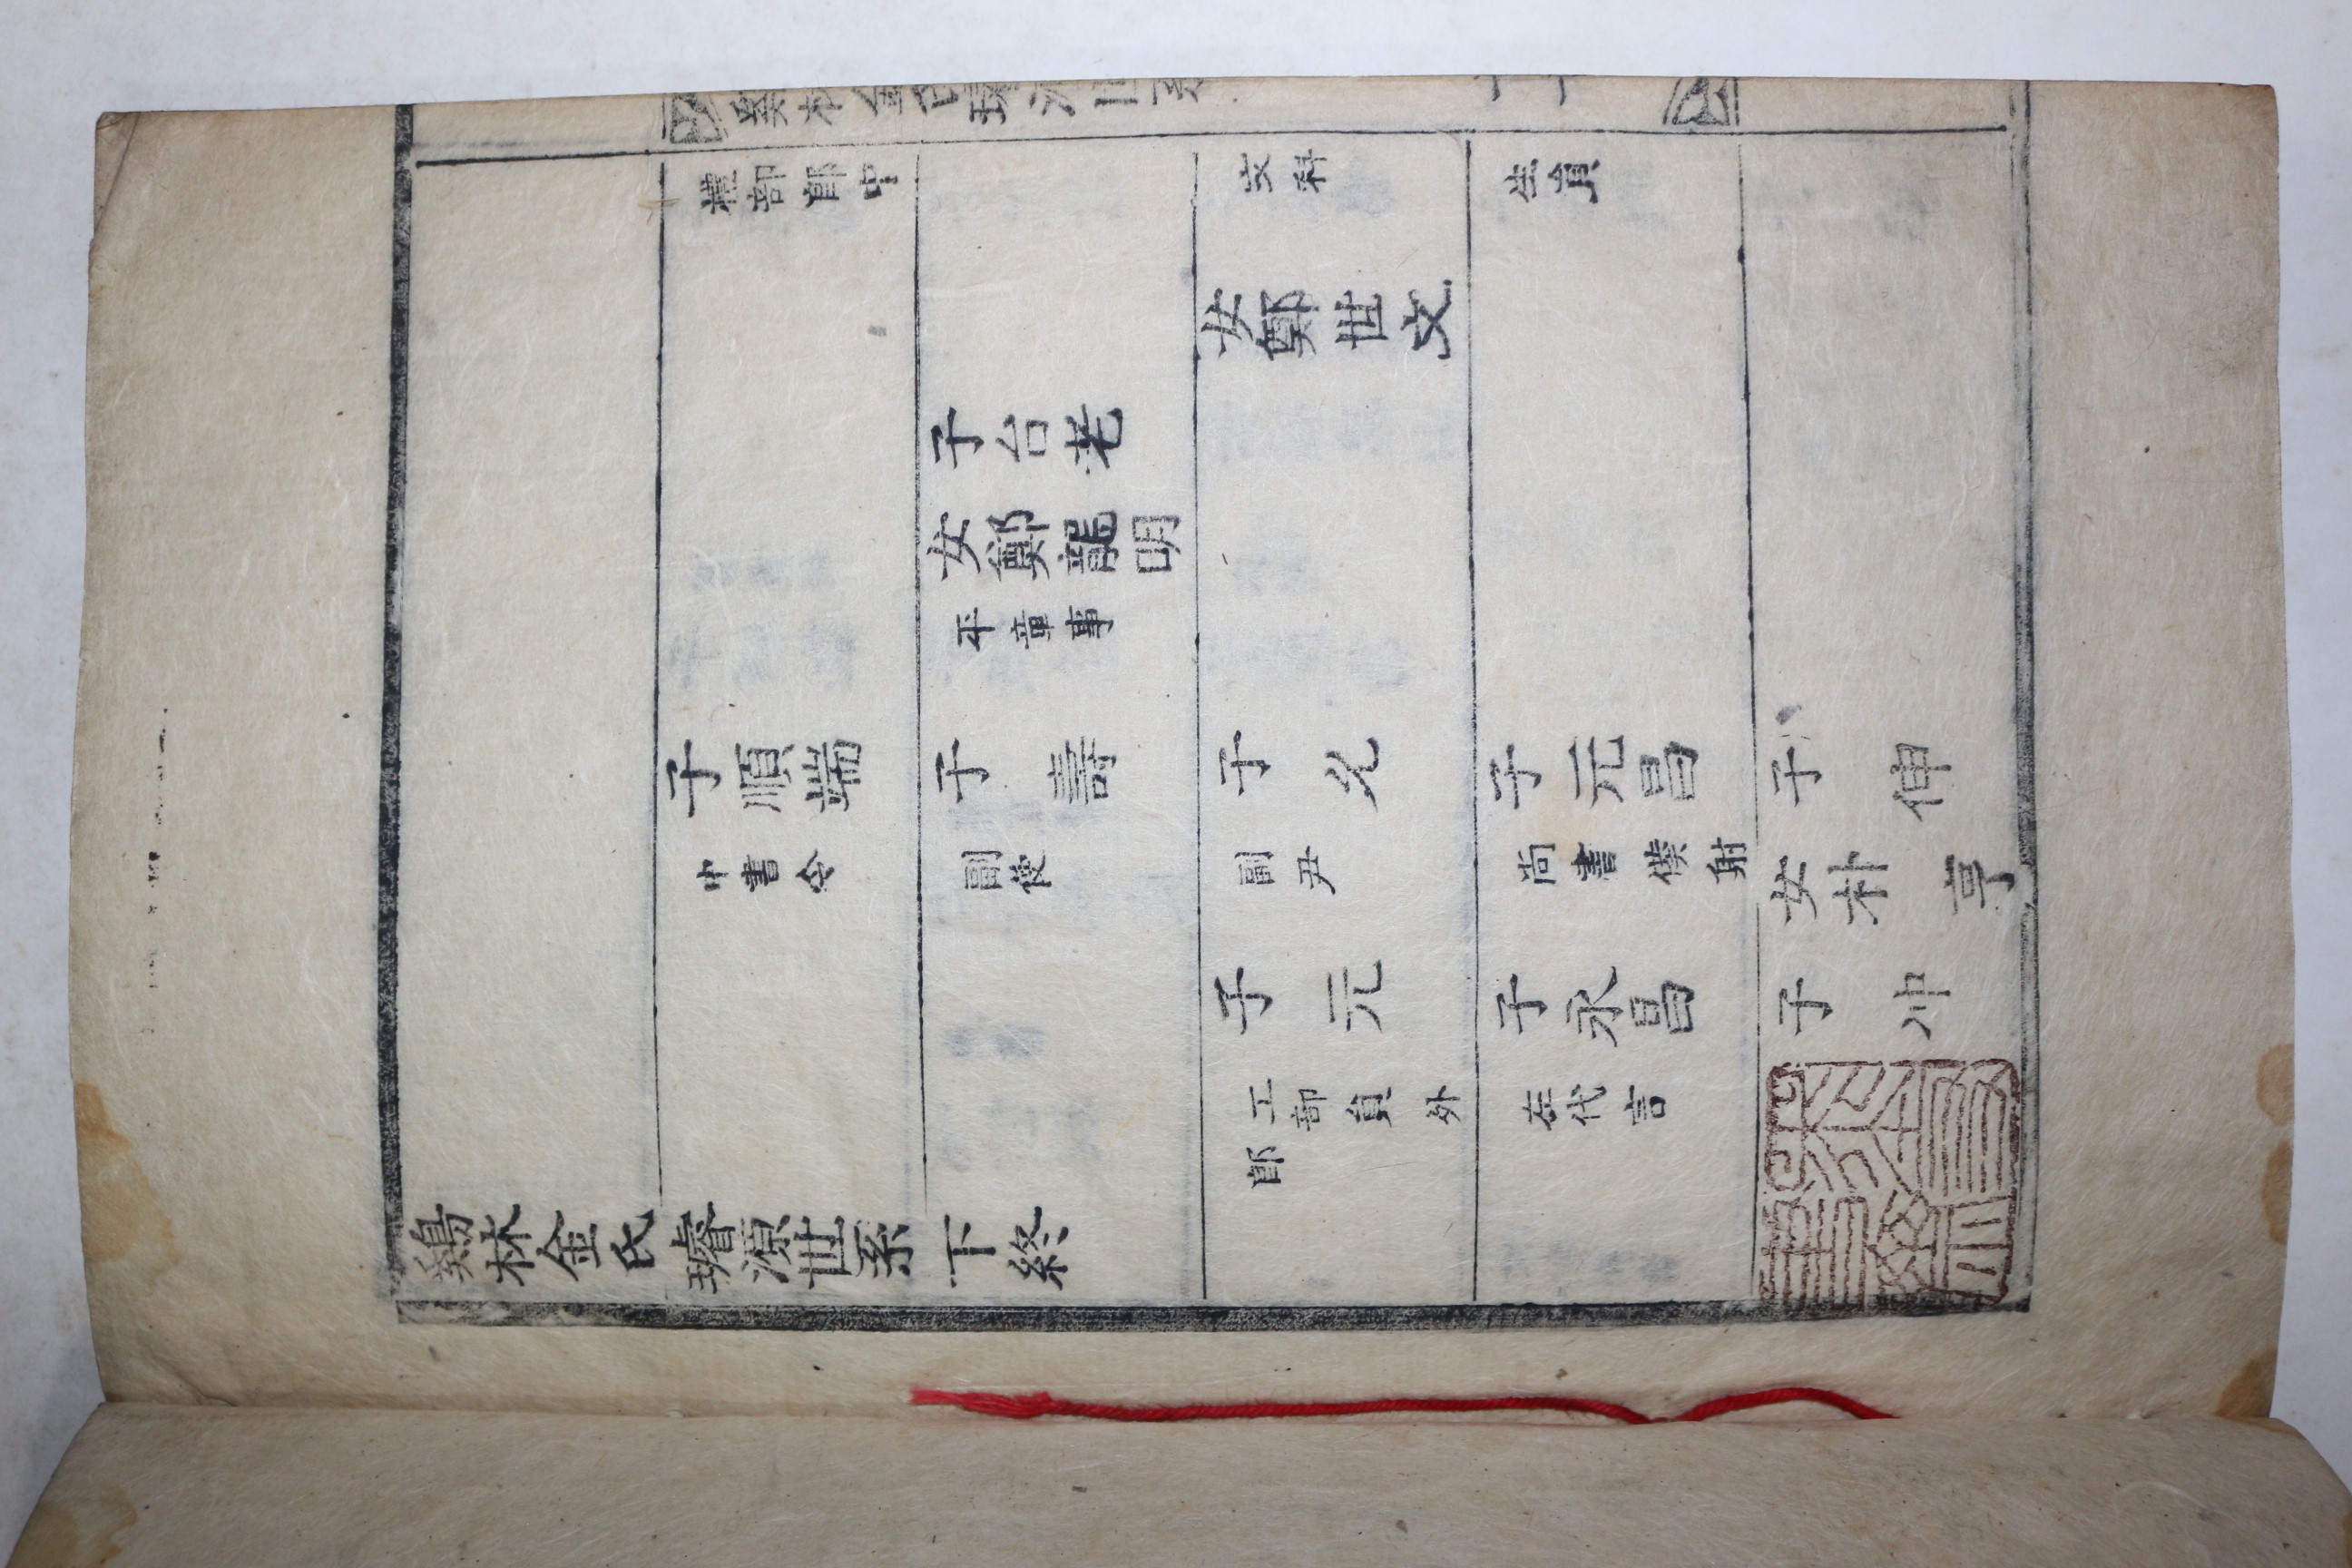 禮部郎中
子順端
中書令
子台老
女鄭龍明
平章事
子壽
副使
文科
女鄭世文
子允
副尹
子元
工部員外
郎
生員
子元昌
尚書僕射
子永昌
左代言
子伸
女朴亨
子冲
鷄林金氏璿源世系下終